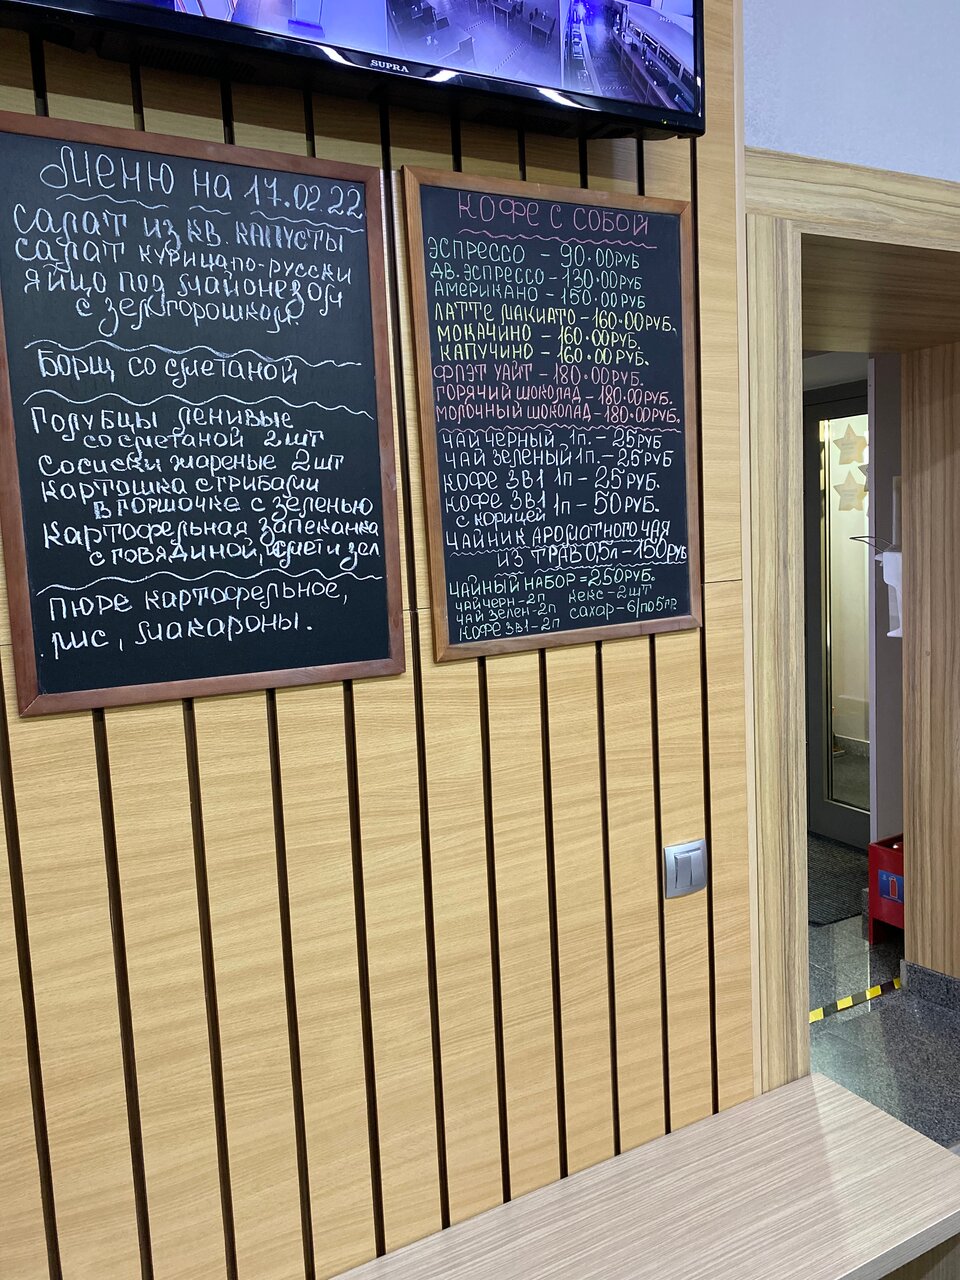 SUPRA
Меню на 17.02.22
салат из кв. капусты
салат курица по-русски
яйцо под майонезом
с зел.горошком.
Борщ со сметаной
Голубцы ленивые
со сметаной 2шт
Сосиски жареные 2шт
Картошка с грибами
в горшочке с зеленью
Картофельная запеканка
с говядиной,
Пюре картофельное,
рис, макароны.
КОФЕ С СОБОЙ
ЭСПРЕССО - 90.00РУБ
ДВ. ЭСПРЕССО - 130.00РУБ
АМЕРИКАНО - 150.00РУБ
ЛАТТЕ МАКИАТО - 160.00РУБ.
МОКАЧИНО - 160.00РУБ.
КАПУЧИНО - 160.00РУБ.
ФЛЭТ УАЙТ - 180.00РУБ.
ГОРЯЧИЙ ШОКОЛАД - 180.00РУБ.
МОЛОЧНЫЙ ШОКОЛАД - 180.00РУБ.
ЧАЙ ЧЕРНЫЙ 1п. - 25РУБ
ЧАЙ ЗЕЛЕНЫЙ 1п. - 25РУБ
КОФЕ 3В1 1п - 25РУБ.
КОФЕ 3В1 1п - 50РУБ.
С КОРИЦЕЙ
ЧАЙНИК АРОМАТНОГО ЧАЯ
ИЗ ТРАВ 0.5л - 150РУБ
ЧАЙНЫЙ НАБОР = 250РУБ.
ЧАЙ ЧЕРН - 2п КЕКС - 2ШТ
ЧАЙ ЗЕЛЕН - 2п САХАР - 6/по5гр.
КОФЕ 3В1 - 2п